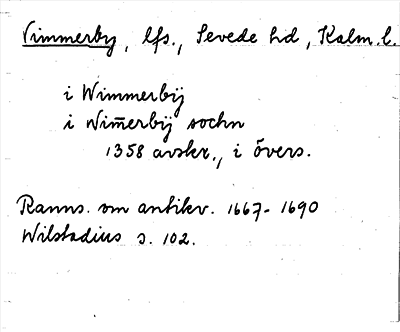 Vimmerby, lfs., Sevede hd, Kalm. l.
i Wimmerbÿ
i Wim̄erbÿ sochn
1358 avskr., i övers.
Ranns. om antikv. 1667-1690
Wilstadius s. 102.